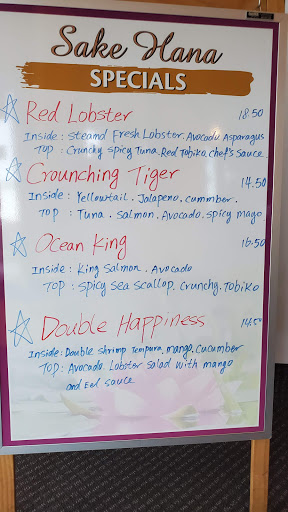 Sake Hana
SPECIALS
Red Lobster 18.50
Inside : Steamd Fresh Lobster. Avocado Asparagus
Top : Crunchy Spicy Tuna. Red Tobiko. Chef's Sauce
Crounching Tiger 14.50
Inside : Yellowtail . Jalapeno . cummber .
Top : Tuna . Salmon . Avocado . Spicy mayo
Ocean King 16.50
Inside : King Salmon . Avocado
Top : Spicy Sea Scallop. Crunchy. Tobiko
Double Happiness 14.50
Inside: Double shrimp Tempura. mango. Cucumber
TOP: Avocado. Lobster Salad with mango
and Eel sauce